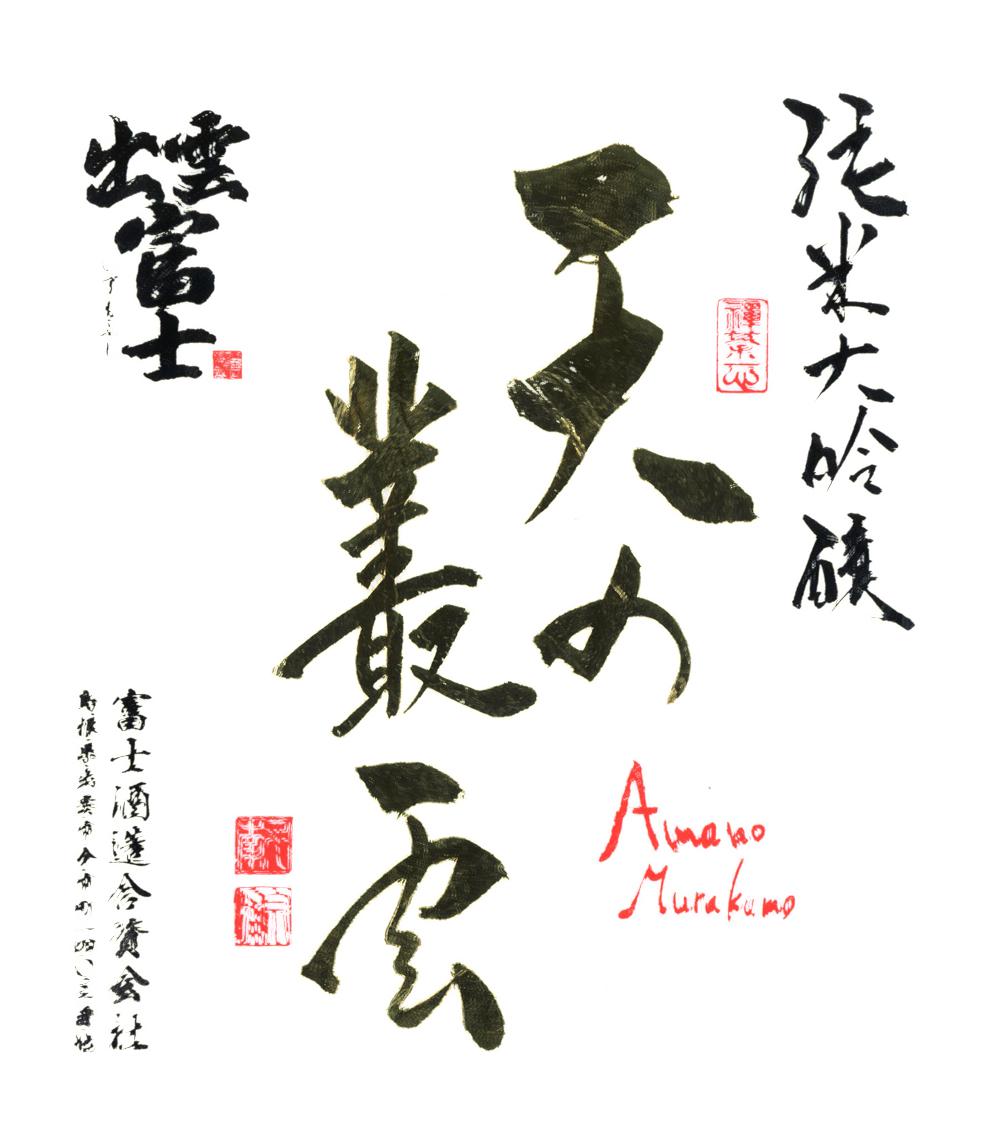 純米大吟醸
天の
叢雲
Amano
Murakumo
出雲
富士
富士酒造合資会社
島根県出雲市今市町一四〇三番地